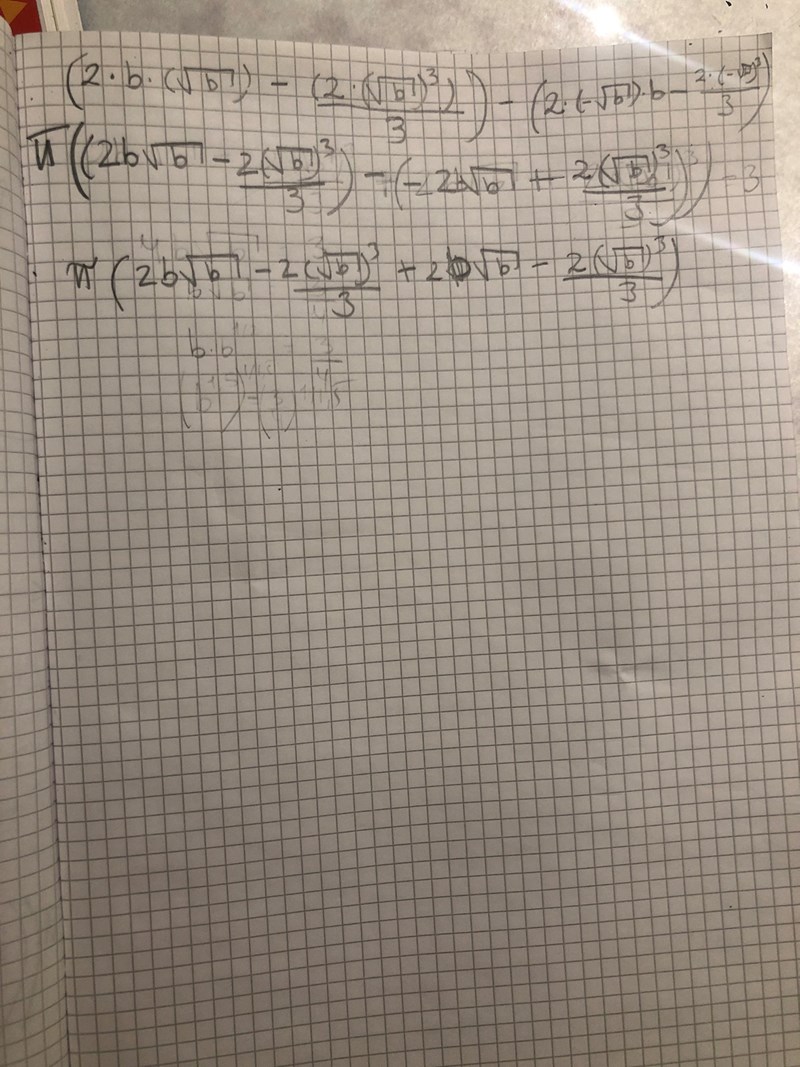 (2·b·(√b) - (2·(√b)³)/3) - (2·(-√b)·b - 2·(-√b)³/3)
π((2b√b - 2(√b)³/3) - (-2b√b + 2(√b)³/3))
π(2b√b - 2(√b)³/3 + 2b√b - 2(√b)³/3)
b·b